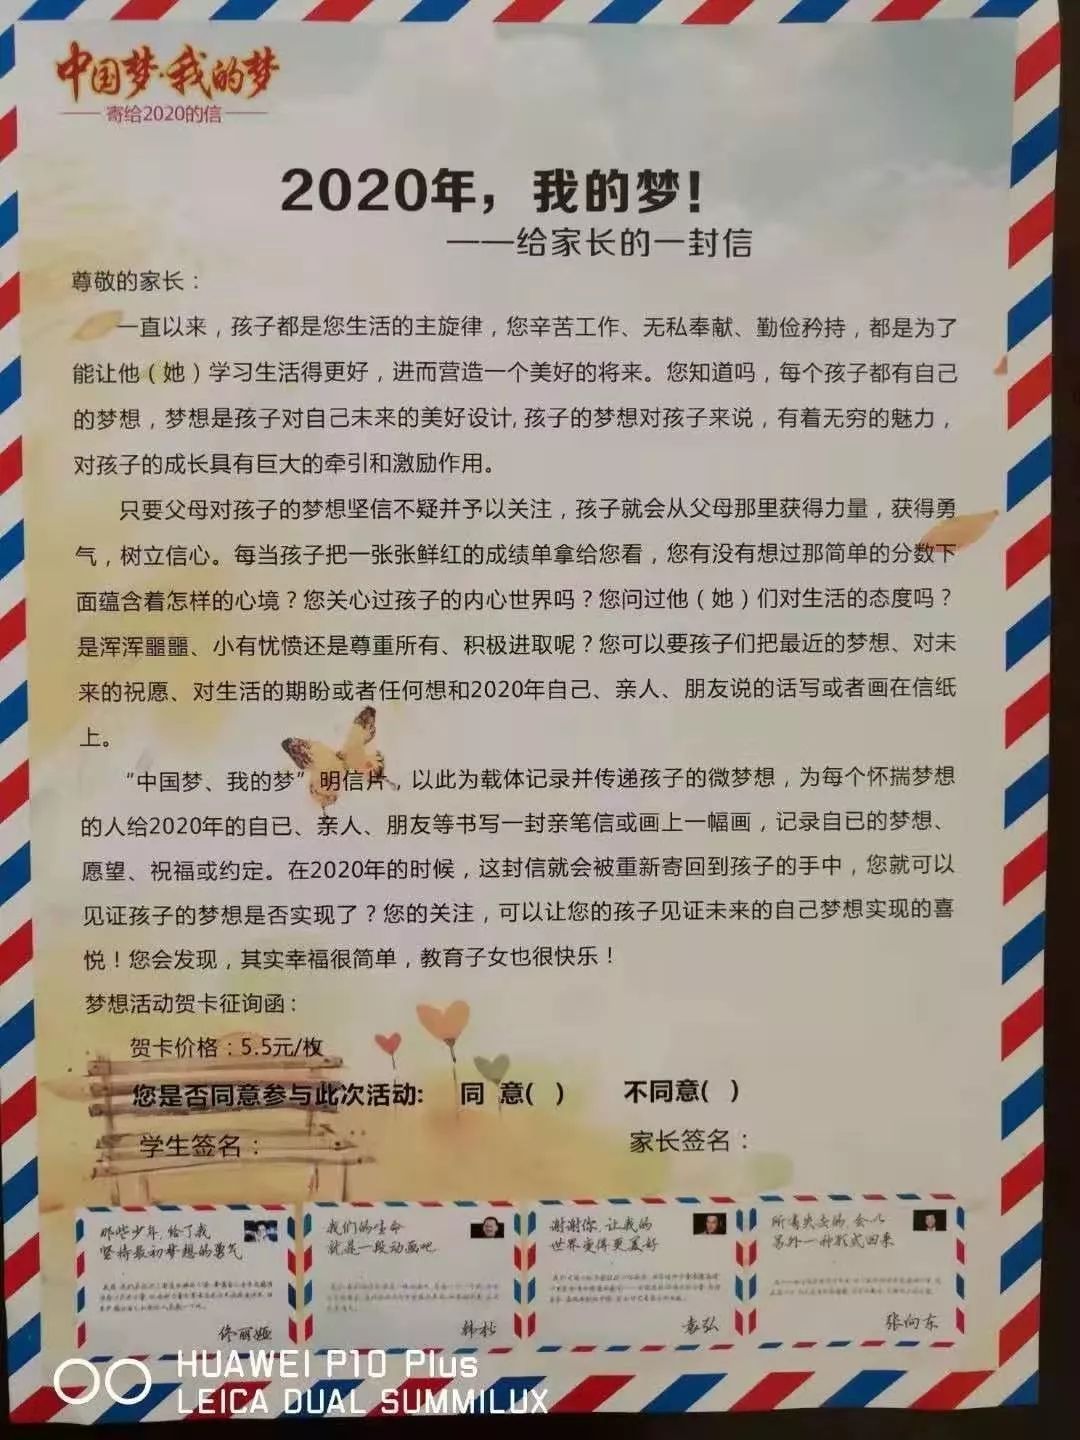 中国梦·我的梦
寄给2020的信
2020年，我的梦！
——给家长的一封信
尊敬的家长：
一直以来，孩子都是您生活的主旋律，您辛苦工作、无私奉献、勤俭矜持，都是为了
能让他（她）学习生活得更好，进而营造一个美好的将来。您知道吗，每个孩子都有自己
的梦想，梦想是孩子对自己未来的美好设计,孩子的梦想对孩子来说，有着无穷的魅力，
对孩子的成长具有巨大的牵引和激励作用。
只要父母对孩子的梦想坚信不疑并予以关注，孩子就会从父母那里获得力量，获得勇
气，树立信心。每当孩子把一张张鲜红的成绩单拿给您看，您有没有想过那简单的分数下
面蕴含着怎样的心境？您关心过孩子的内心世界吗？您问过他（她）们对生活的态度吗？
是浑浑噩噩、小有忧愤还是尊重所有、积极进取呢？您可以要孩子们把最近的梦想、对未
来的祝愿、对生活的期盼或者任何想和2020年自己、亲人、朋友说的话写或者画在信纸
上。
“中国梦、我的梦”明信片，以此为载体记录并传递孩子的微梦想，为每个怀揣梦想
的人给2020年的自已、亲人、朋友等书写一封亲笔信或画上一幅画，记录自已的梦想、
愿望、祝福或约定。在2020年的时候，这封信就会被重新寄回到孩子的手中，您就可以
见证孩子的梦想是否实现了？您的关注，可以让您的孩子见证未来的自己梦想实现的喜
悦！您会发现，其实幸福很简单，教育子女也很快乐！
梦想活动贺卡征询函：
贺卡价格：5.5元/枚
您是否同意参与此次活动: 同 意( ) 不同意( )
学生签名： 家长签名：
那些少年,给了我
坚持最初梦想的勇气
佟丽娅
我们的生命
就是一段动画吧
韩杉
谢谢你,让我的
世界变得更美好
袁弘
所有失去的,会以
另外一种形式回来
张向东
HUAWEI P10 Plus
LEICA DUAL SUMMILUX